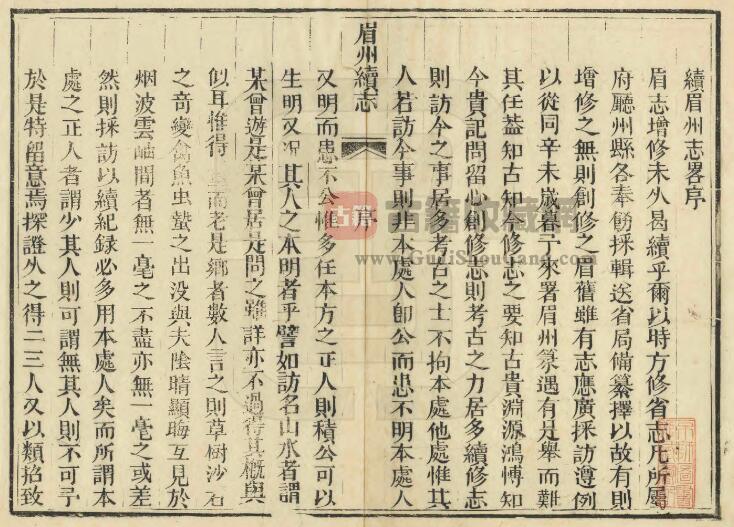 續眉州志畧序
眉志增修未久曷續乎爾以時方修省志凡所屬
府廳州縣各奉飭採輯送省局備纂擇以故有則
增修之無則創修之眉舊雖有志應廣採訪遵例
以從同辛未歲暮予來署眉州篆遇有是舉而難
其任葢知古知今修志之要知古貴淵源鴻愽知
今貴記問留心創修志則考古之力居多續修志
則訪今之事居多考古之士不拘本處他處惟其
人若訪今事則非本處人卽公而患不明本處人
眉州續志
序
又明而患不公惟多任本方之正人則積公可以
生明又况其人之本明者乎譬如訪名山水者謂
某曾遊是某曾居是問之雖詳亦不過得其概與
似耳惟得而老是鄉者數人言之則草樹沙石
之奇變禽魚虫蟄之出没與夫陰晴顯晦互見於
烟波雲岫間者無一毫之不盡亦無一毫之或差
然則採訪以續紀録必多用本處人矣而所謂本
處之正人者謂少其人則可謂無其人則不可予
於是特留意焉探證久之得二三人又以類招致
古籍收藏网
www.GujiShouCang.com